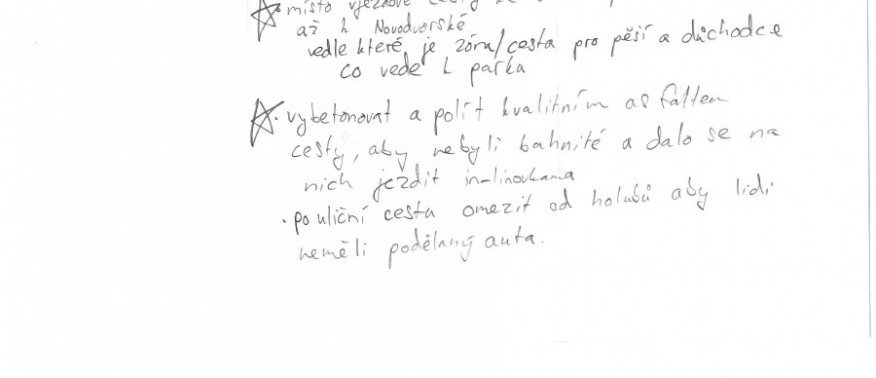 místo vjezdové cesty
až k Novodvorské
vedle které je zóna/cesta pro pěší a důchodce
co vede k parka
· vybetonovat a polít kvalitním asfaltem
cesty, aby nebyli bahnité a dalo se na
nich jezdit in-linovkama
· pouliční cesta omezit od holubů aby lidi
neměli podělaný auta.